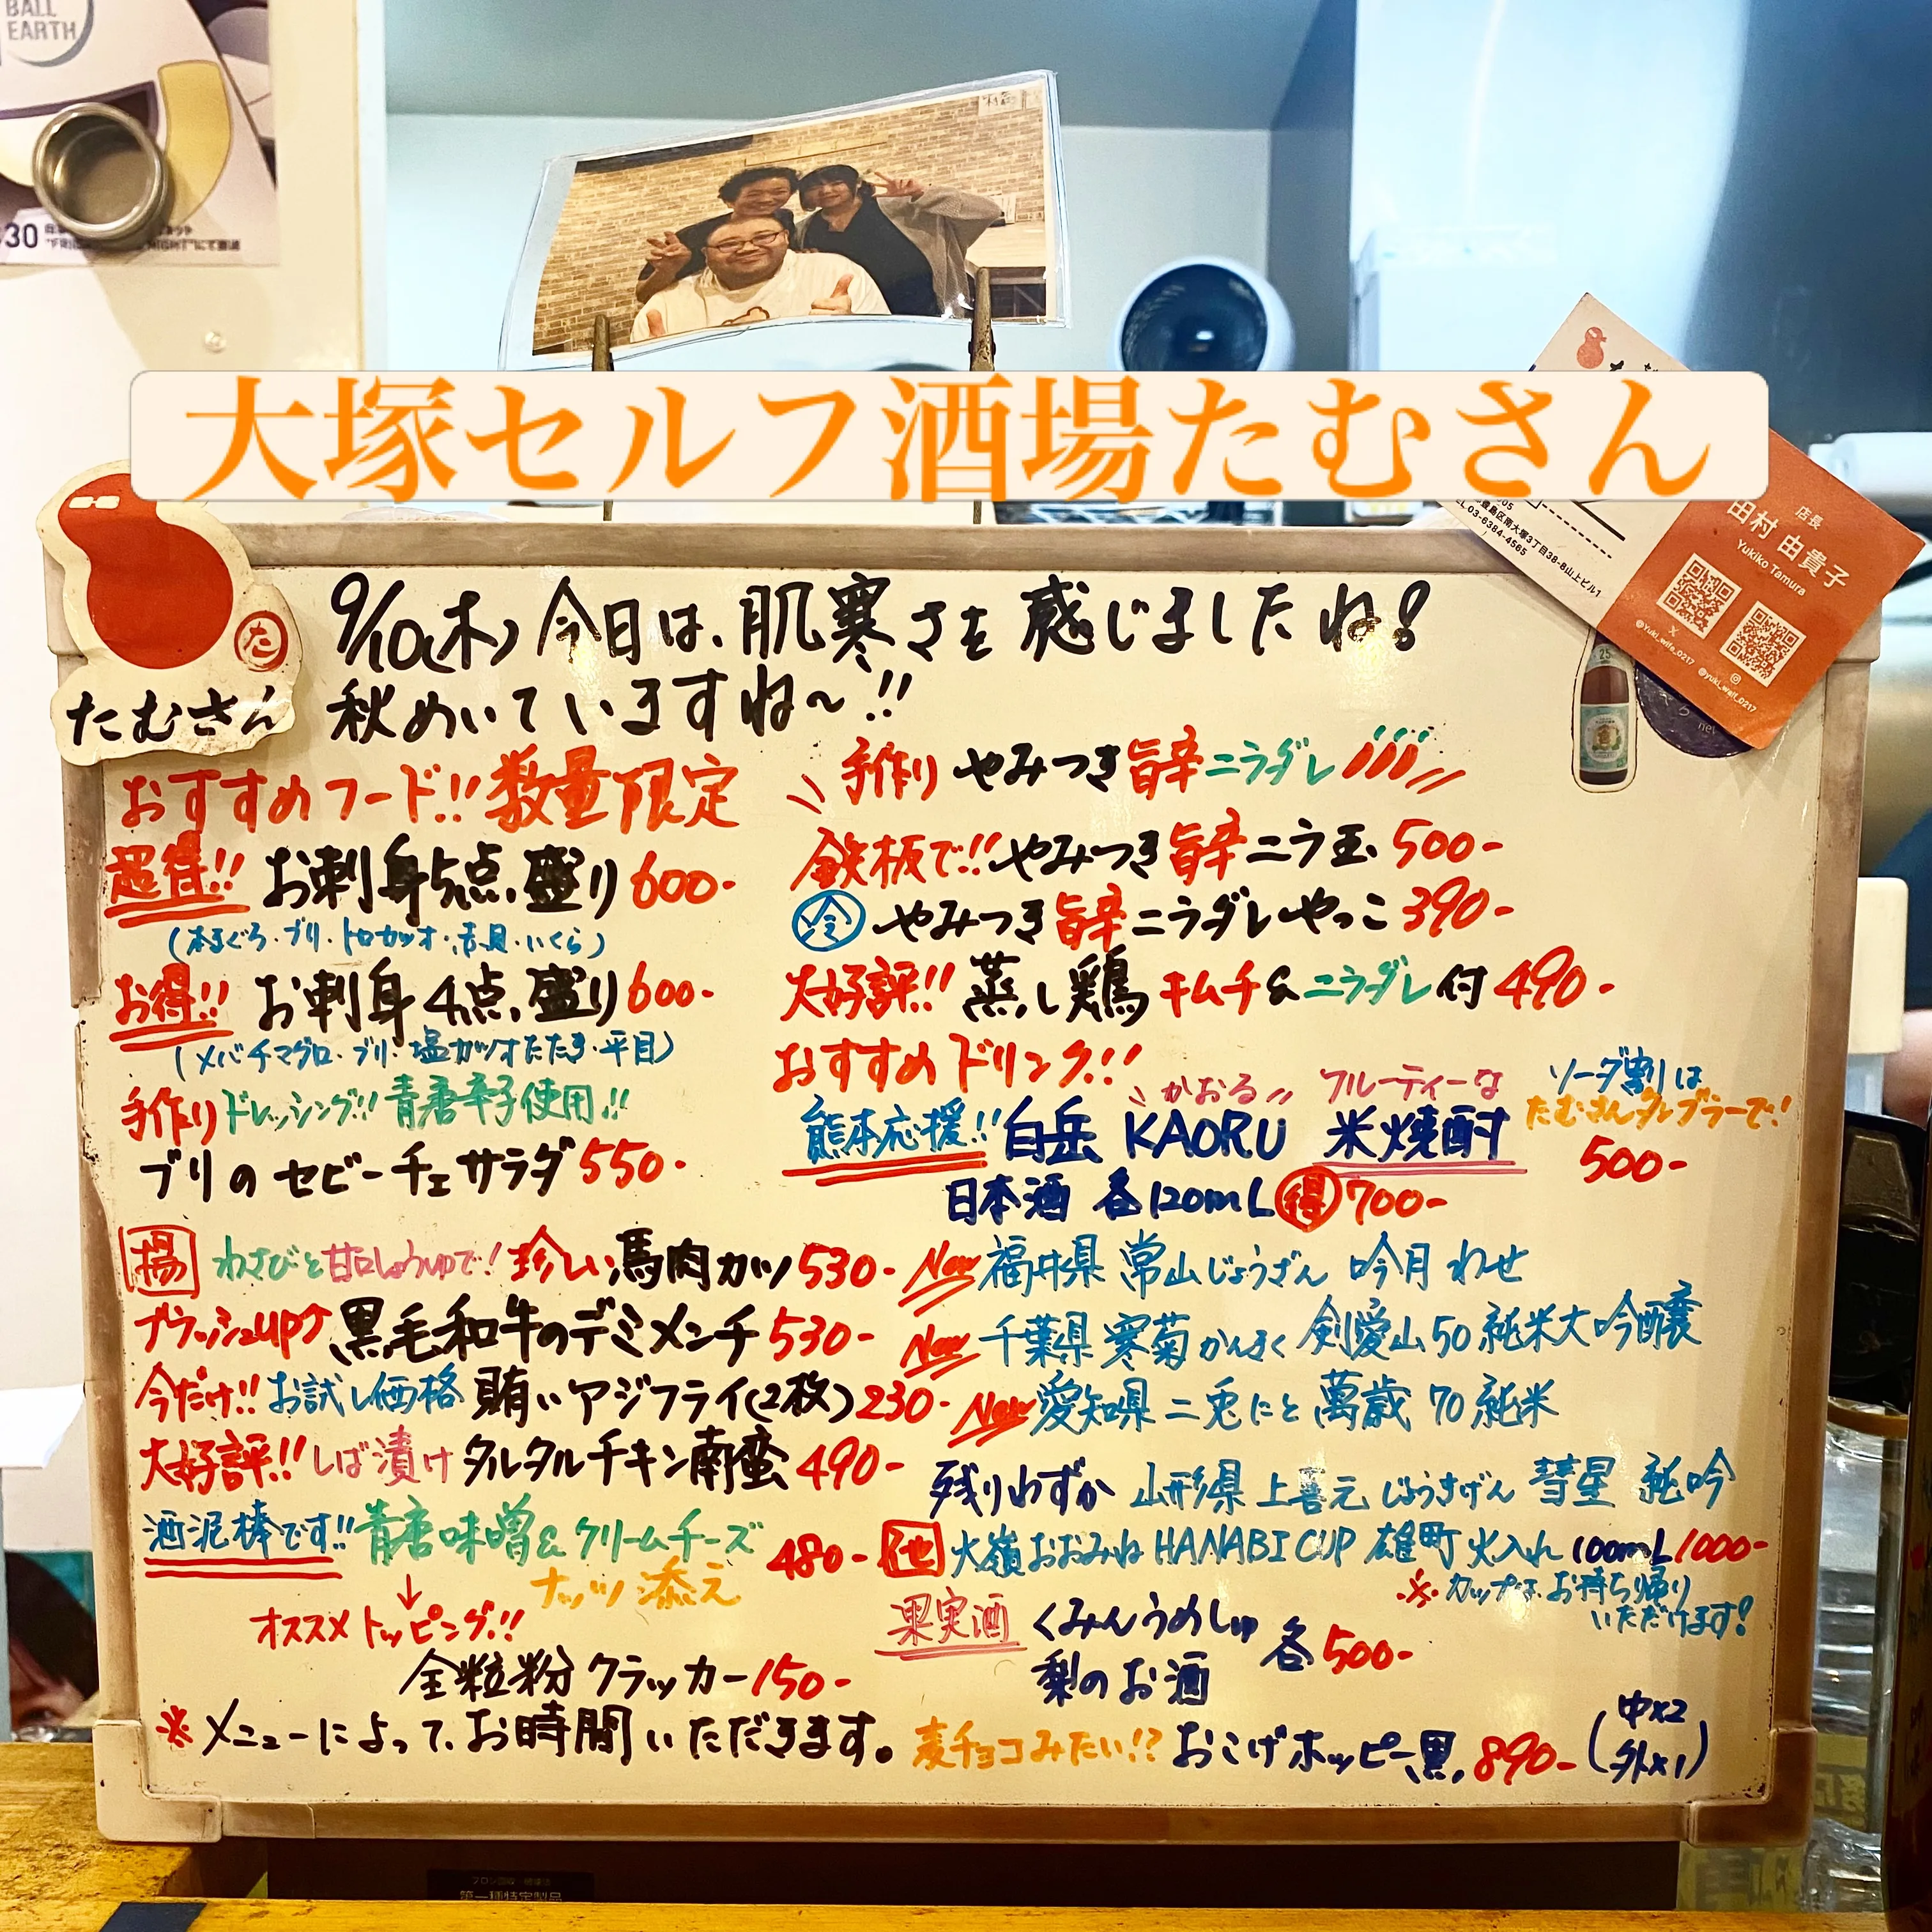 BALL
EARTH
30
大塚セルフ酒場たむさん
店長
田村 由貴子
Yukiko Tamura
豊島区南大塚3丁目38-8山上ビル1
TEL 03-6384-4565
X
@Yuki_wife_0217
@yuki_waif_0217
た
たむさん
9/10(木) 今日は、肌寒さを感じましたね!
秋めいていますね〜!!
おすすめフード!! 数量限定
超得!! お刺身5点盛り 600-
(本まぐろ・ブリ・トロカツオ・青貝・いくら)
お得!! お刺身4点盛り 600-
(メバチマグロ・ブリ・塩ガツオたたき・平目)
手作りドレッシング!! 青唐辛子使用!!
ブリのセビーチェサラダ 550-
揚 わさびと甘口しょうゆで! 珍しい馬肉カツ 530-
ブラッシュup↑ 黒毛和牛のデミメンチ 530-
今だけ!! お試し価格 賄いアジフライ(2枚) 230-
大好評!! しば漬けタルタルチキン南蛮 490-
酒泥棒です!! 青唐味噌&クリームチーズ
ナッツ添え 480-
↓
オススメトッピング!!
全粒粉クラッカー 150-
※メニューによって、お時間いただきます。
手作り やみつき旨辛ニラダレ
鉄板で!! やみつき旨辛ニラ玉 500-
冷 やみつき旨辛ニラダレやっこ 390-
大好評!! 蒸し鶏 キムチ&ニラダレ付 490-
おすすめドリンク!!
かおる フルーティーな
熊本応援!! 白岳 KAORU 米焼酎
ソーダ割りは
たむさんタンブラーで!
500-
日本酒 各120mL 得 700-
New 福井県 常山じょうざん 吟月 わせ
New 千葉県 寒菊かんきく 剣愛山50 純米大吟醸
New 愛知県 二兎にと 萬歳 70 純米
残りわずか 山形県 上喜元 じょうきげん 彗星 純吟
他 大嶺おおみね HANABI CUP 雄町 火入れ 100mL 1000-
※カップは、お持ち帰り
いただけます!
果実酒 くみんうめしゅ
梨のお酒
各500-
麦チョコみたい!? おこげホッピー黒 890- (中×2
外×1)
第一種特定製品